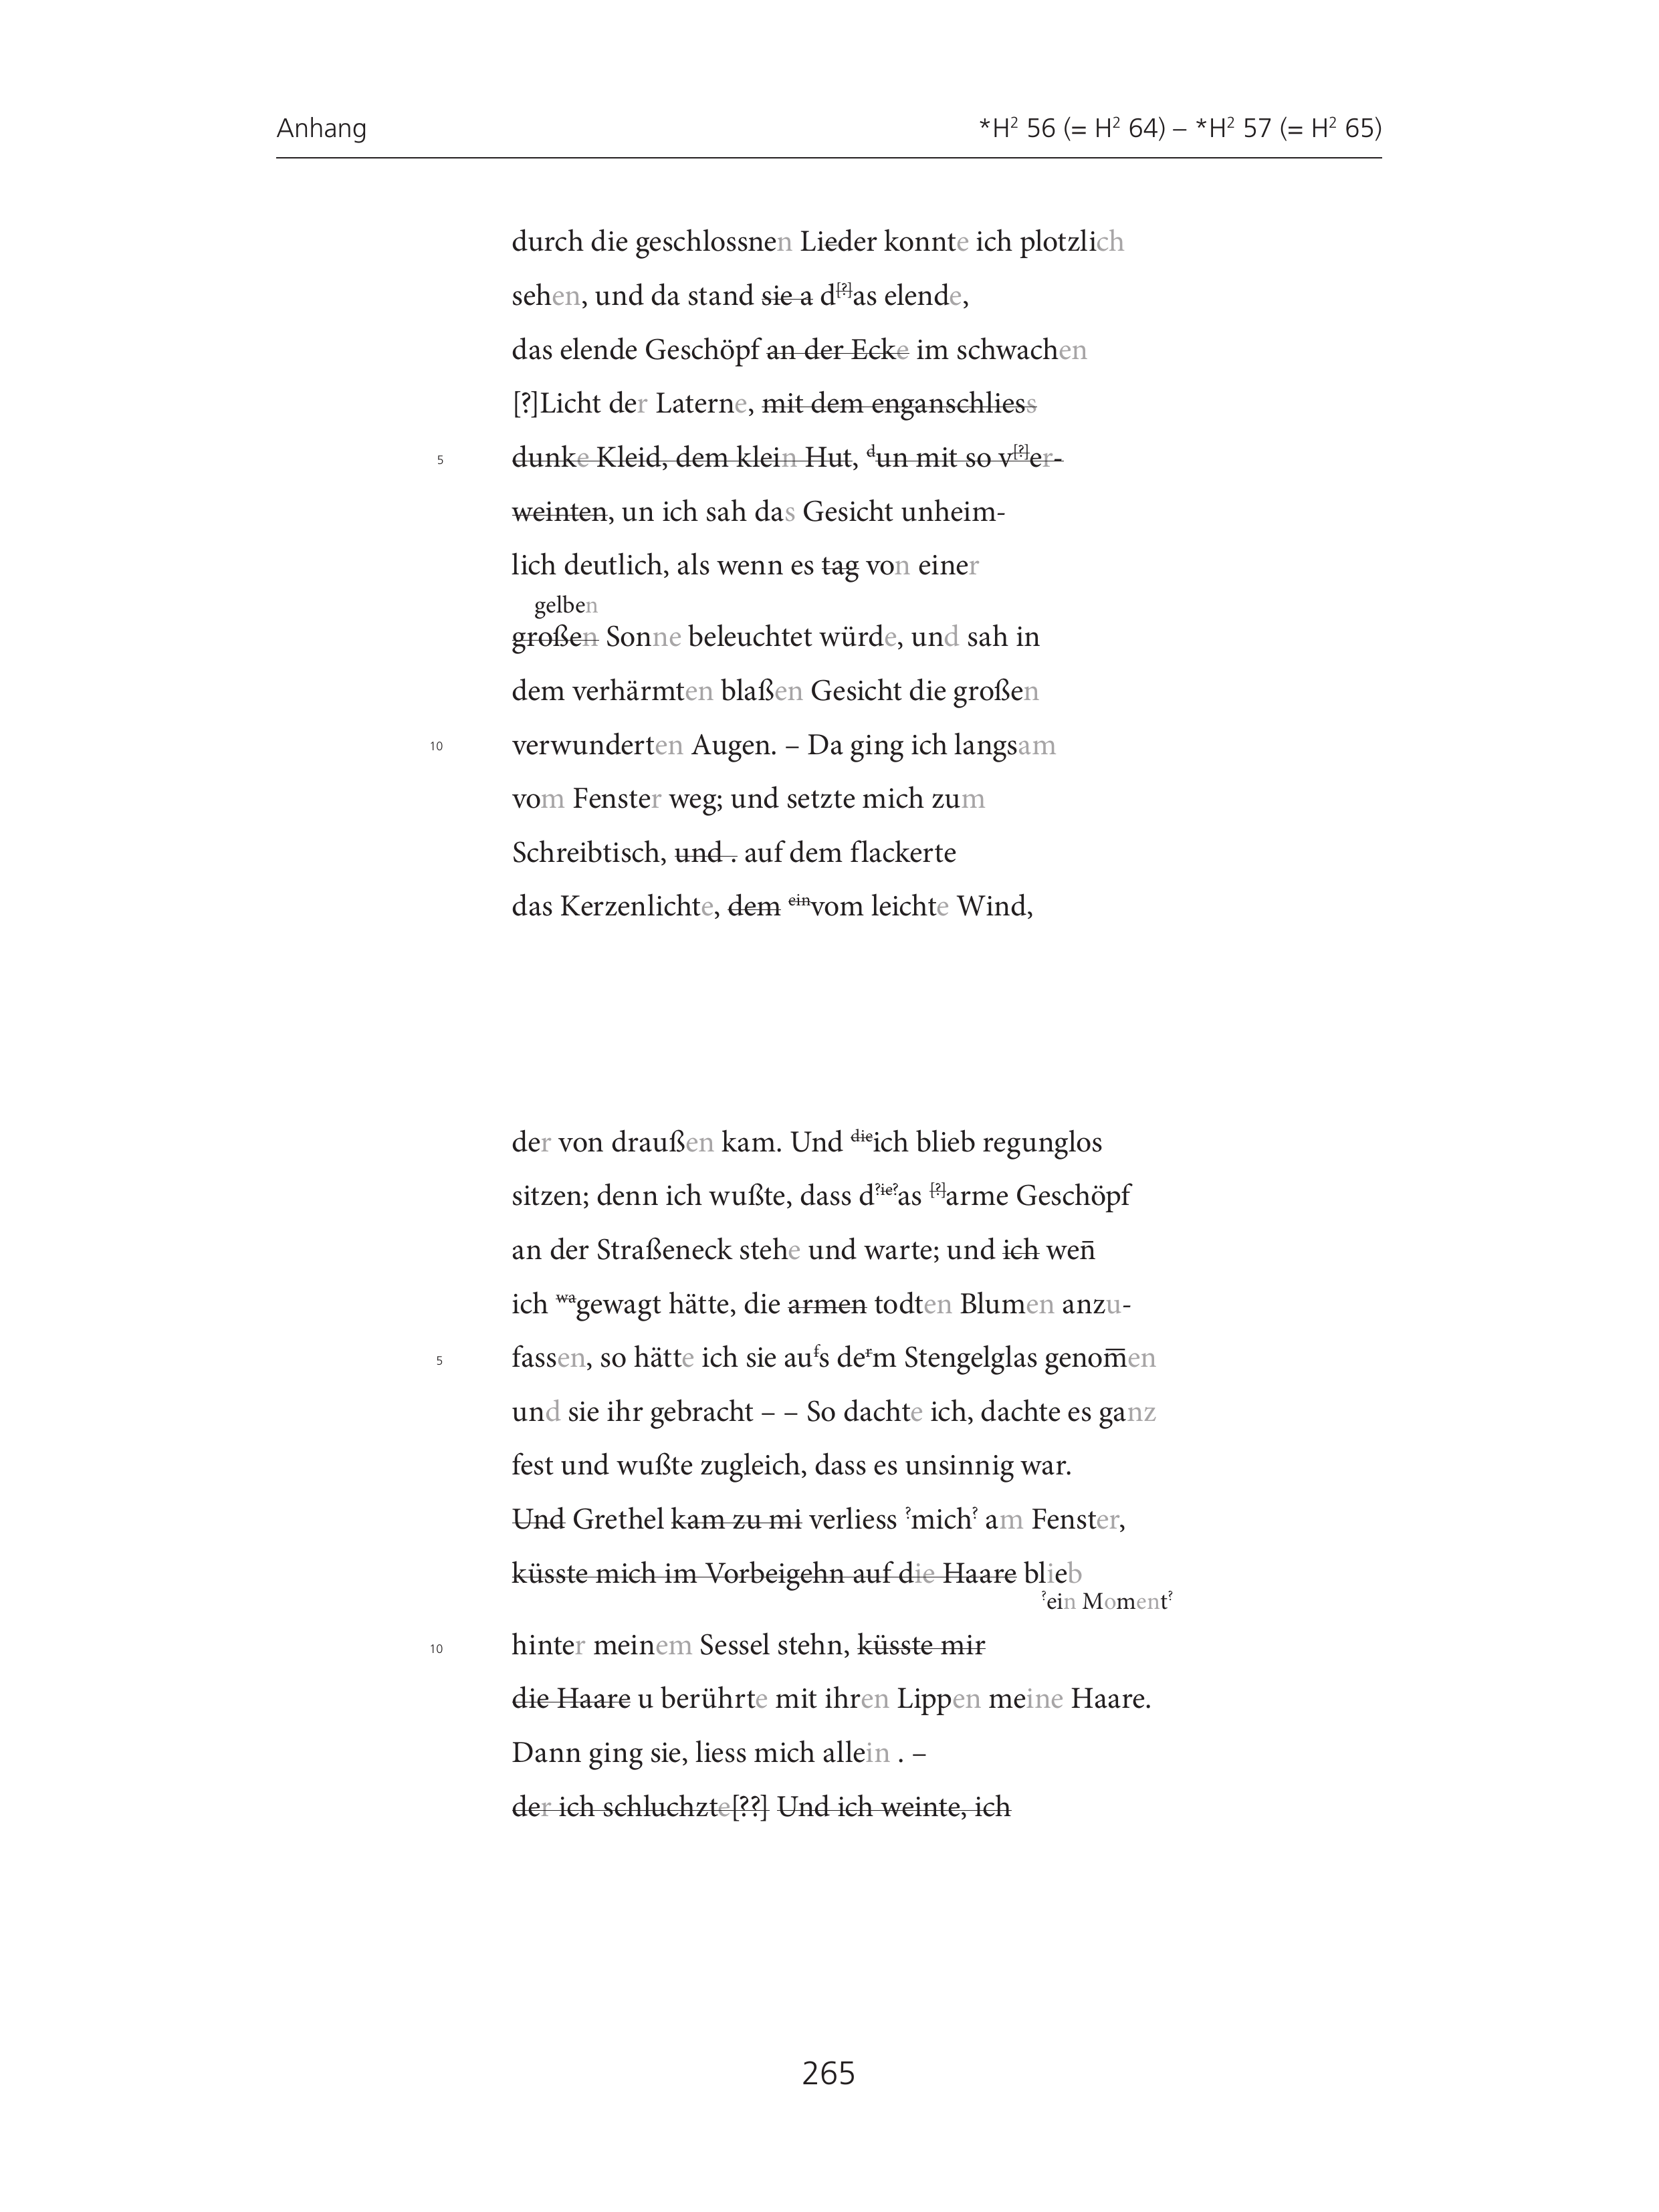 Anhang *H² 56 (= H² 64) – *H² 57 (= H² 65)
durch die geschlossnen Lieder konnte ich plotzlich
sehen, und da stand sie a d[?]as elende,
das elende Geschöpf an der Ecke im schwachen
[?]Licht der Laterne, mit dem enganschliess
5 dunke Kleid, dem klein Hut, dun mit so v[?]er-
weinten, un ich sah das Gesicht unheim-
lich deutlich, als wenn es tag von einer
gelben
großen Sonne beleuchtet würde, und sah in
dem verhärmten blaßen Gesicht die großen
10 verwunderten Augen. – Da ging ich langsam
vom Fenster weg; und setzte mich zum
Schreibtisch, und . auf dem flackerte
das Kerzenlichte, dem einvom leichte Wind,
der von draußen kam. Und dieich blieb regunglos
sitzen; denn ich wußte, dass d?ie?as [?]arme Geschöpf
an der Straßeneck stehe und warte; und ich wen̄
ich wagewagt hätte, die armen todten Blumen anzu-
5 fassen, so hätte ich sie aufs derm Stengelglas genom̅en
und sie ihr gebracht – – So dachte ich, dachte es ganz
fest und wußte zugleich, dass es unsinnig war.
Und Grethel kam zu mi verliess ?mich? am Fenster,
küsste mich im Vorbeigehn auf die Haare blieb
?ein Moment?
10 hinter meinem Sessel stehn, küsste mir
die Haare u berührte mit ihren Lippen meine Haare.
Dann ging sie, liess mich allein . –
der ich schluchzte[??] Und ich weinte, ich
265